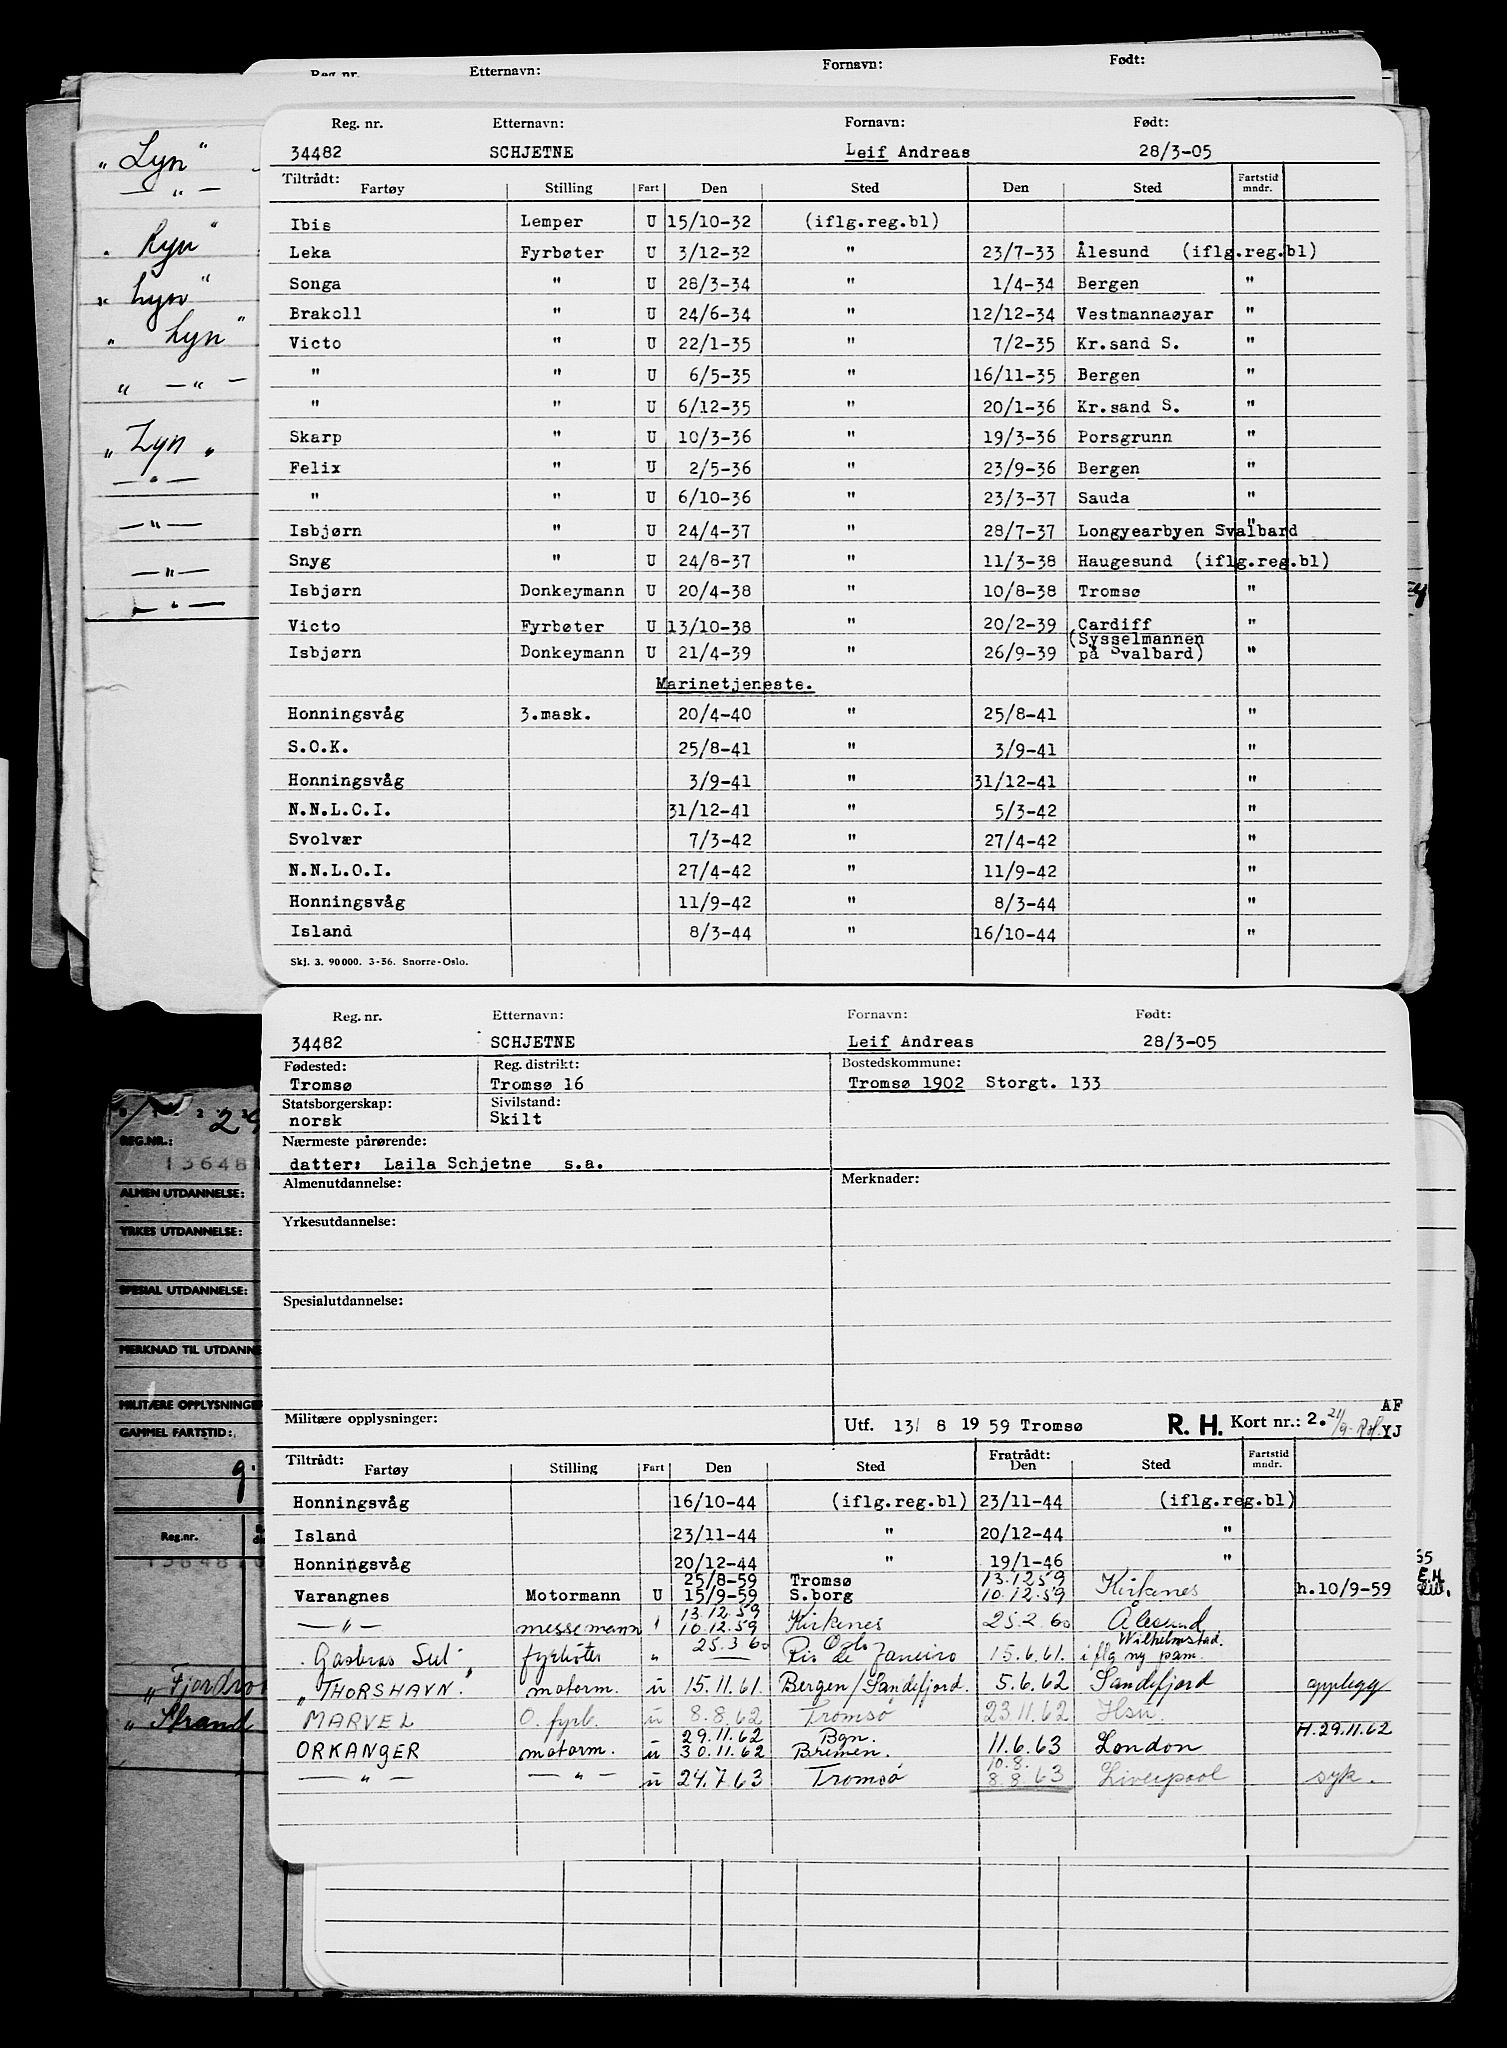 Reg. nr. Etternavn: Fornavn: Født:
Reg. nr. Etternavn: Fornavn: Født:
34482 SCHJETNE Leif Andreas 28/3-05
Tiltrådt: Fartøy Stilling Fart Den Sted Den Sted Fartstid mndr.
Ibis Lemper U 15/10-32 (iflg.reg.bl)
Leka Fyrbøter U 3/12-32 " 23/7-33 Ålesund (iflg.reg.bl)
Songa " U 28/3-34 " 1/4-34 Bergen "
Brakoll " U 24/6-34 " 12/12-34 Vestmannaøyar "
Victo " U 22/1-35 " 7/2-35 Kr.sand S. "
" " U 6/5-35 " 16/11-35 Bergen "
" " U 6/12-35 " 20/1-36 Kr.sand S. "
Skarp " U 10/3-36 " 19/3-36 Porsgrunn "
Felix " U 2/5-36 " 23/9-36 Bergen "
" " U 6/10-36 " 23/3-37 Sauda "
Isbjørn " U 24/4-37 " 28/7-37 Longyearbyen Svalbard "
Snyg " U 24/8-37 " 11/3-38 Haugesund (iflg.reg.bl)
Isbjørn Donkeymann U 20/4-38 " 10/8-38 Tromsø "
Victo Fyrbøter U 13/10-38 " 20/2-39 Cardiff "
Isbjørn Donkeymann U 21/4-39 " 26/9-39 (Sysselmannen på Svalbard) "
Marinetjeneste.
Honningsvåg 3.mask. 20/4-40 " 25/8-41 "
S.O.K. 25/8-41 " 3/9-41 "
Honningsvåg 3/9-41 " 31/12-41 "
N.N.L.O.I. 31/12-41 " 5/3-42 "
Svolvær 7/3-42 " 27/4-42 "
N.N.L.O.I. 27/4-42 " 11/9-42 "
Honningsvåg 11/9-42 " 8/3-44 "
Island 8/3-44 " 16/10-44 "
Skj. 3. 90000. 3-56. Snorre-Oslo.
"Lyn"
— " —
" Lyn"
" Lyn"
" Lyn"
" — " —
"Lyn"
— " —
— " —
— " —
— " —
Reg. nr. Etternavn: Fornavn: Født:
34482 SCHJETNE Leif Andreas 28/3-05
Fødested: Reg. distrikt: Bostedskommune:
Tromsø Tromsø 16 Tromsø 1902 Storgt. 133
Statsborgerskap: Sivilstand:
norsk Skilt
Nærmeste pårørende:
datter: Laila Schjetne s.a.
Almenutdannelse: Merknader:
Yrkesutdannelse:
Spesialutdannelse:
Militære opplysninger: Utf. 13/ 8 19 59 Tromsø R. H. Kort nr.: 2. AF YJ
Tiltrådt: Fartøy Stilling Fart Den Sted Fratrådt: Den Sted Fartstid mndr.
Honningsvåg 16/10-44 (iflg.reg.bl) 23/11-44 (iflg.reg.bl)
Island 23/11-44 " 20/12-44 "
Honningsvåg 20/12-44 " 19/1-46 "
25/8-59 Tromsø 13.12.59
Varangnes Motormann U 15/9-59 S.borg 10.12.59 Kirkenes h.10/9-59
13.12.59
— " — messemann " 10.12.59 Kirkenes 25.2.60 Ålesund
25.3.60 Oslo Wilhelmstad.
Gasbras Sul fyrbøter " — Rio de Janeiro 15.6.61. iflg ny pam.
"THORSHAVN" motorm. u 15.11.61. Bergen/Sandefjord. 5.6.62 Sandefjord opplegg
MARVEL O. fyrb. u 8.8.62 Tromsø 23.11.62 Hsu.
29.11.62 Bgn. H.29.11.62
ORKANGER motorm. u 30.11.62 Bremen. 11.6.63 London
10.8.
— " — — " — u 24.7.63 Tromsø 8.8.63 Liverpool syk.
REG.NR.:
136481
ALMEN UTDANNELSE:
YRKES UTDANNELSE:
SPESIAL UTDANNELSE:
MERKNAD TIL UTDANNE
MILITÆRE OPPLYSNINGER
GAMMEL FARTSTID:
9.
Reg.nr.
136481
"Fjordro
"Strand
65
E.H.